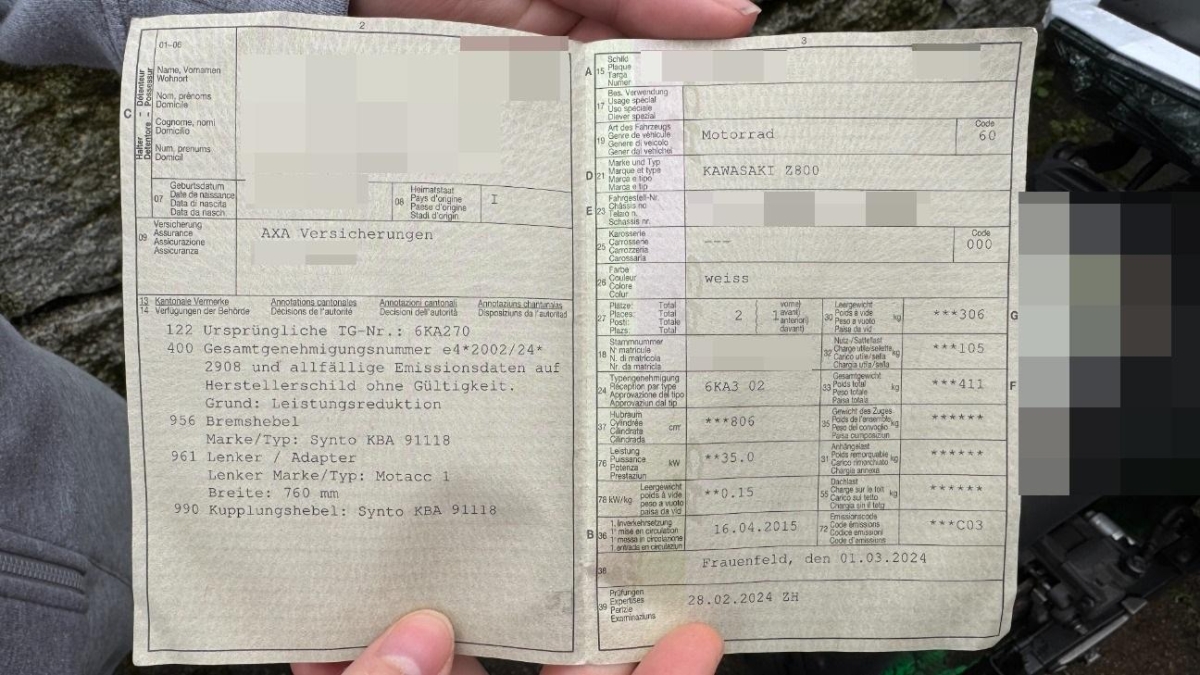 2
01-06
C
Halter Détenteur
Detentore Possessur
Name, Vornamen
Wohnort
Nom, prénoms
Domicile
Cognome, nomi
Domicilio
Num, prenums
Domicil
07
Geburtsdatum
Date de naissance
Data di nascita
Data da nasch.
08
Heimatstaat
Pays d'origine
Paese d'origine
Stadi d'origin
I
09
Versicherung
Assurance
Assicurazione
Assicuranza
AXA Versicherungen
13 Kantonale Vermerke Annotations cantonales Annotazioni cantonali Annotaziuns chantunalas
14 Verfügungen der Behörde Décisions de l'autorité Decisioni dell'autorità Disposiziuns da l'autoritad
122 Ursprüngliche TG-Nr.: 6KA270
400 Gesamtgenehmigungsnummer e4*2002/24*
2908 und allfällige Emissionsdaten auf
Herstellerschild ohne Gültigkeit.
Grund: Leistungsreduktion
956 Bremshebel
Marke/Typ: Synto KBA 91118
961 Lenker / Adapter
Lenker Marke/Typ: Motacc 1
Breite: 760 mm
990 Kupplungshebel: Synto KBA 91118
3
A 15
Schild
Plaque
Targa
Numer
17
Bes. Verwendung
Usage spécial
Uso speciale
Diever spezial
19
Art des Fahrzeugs
Genre de véhicule
Genere di veicolo
Gener dal vehichel
Motorrad
Code
60
D 21
Marke und Typ
Marque et type
Marca e tipo
Marca e tip
KAWASAKI Z800
E 23
Fahrgestell-Nr.
Châssis no
Telaio n.
Schassis nr.
25
Karosserie
Carrosserie
Carrozzeria
Carossaria
---
Code
000
26
Farbe
Couleur
Colore
Colur
weiss
27
Plätze: Total
Places: Total
Posti: Totale
Plazs: Total
2
1
vorne)
avant)
anteriori)
davant)
30
Leergewicht
Poids à vide
Peso a vuoto
Paisa da vid
kg
***306
G
18
Stammnummer
N° matricule
N. di matricola
Nr. da matricla
32
Nutz-/Sattellast
Charge utile/sellette
Carico utile/sella
Chargia utila/sella
kg
***105
24
Typengenehmigung
Réception par type
Approvazione del tipo
Approvaziun dal tip
6KA3 02
33
Gesamtgewicht
Poids total
Peso totale
Paisa totala
kg
***411
F
37
Hubraum
Cylindrée
Cilindrata
Cilindrada
cm³
***806
35
Gewicht des Zuges
Poids de l'ensemble
Peso del convoglio
Paisa cumposiziun
kg
******
76
Leistung
Puissance
Potenza
Prestaziun
kW
**35.0
31
Anhängelast
Poids remorquable
Carico rimorchiato
Chargia annexa
kg
******
78 kW/kg
Leergewicht
poids à vide
peso a vuoto
paisa da vid
**0.15
55
Dachlast
Charge sur le toit
Carico sul tetto
Chargia sin il tetg
kg
******
B 36
1. Inverkehrsetzung
1re mise en circulation
1a messa in circolazione
1. entrada en circulaziun
16.04.2015
72
Emissionscode
Code émissions
Codice emissioni
Code d'emissiuns
***C03
38
Frauenfeld, den 01.03.2024
39
Prüfungen
Expertises
Perizie
Examinaziuns
28.02.2024 ZH